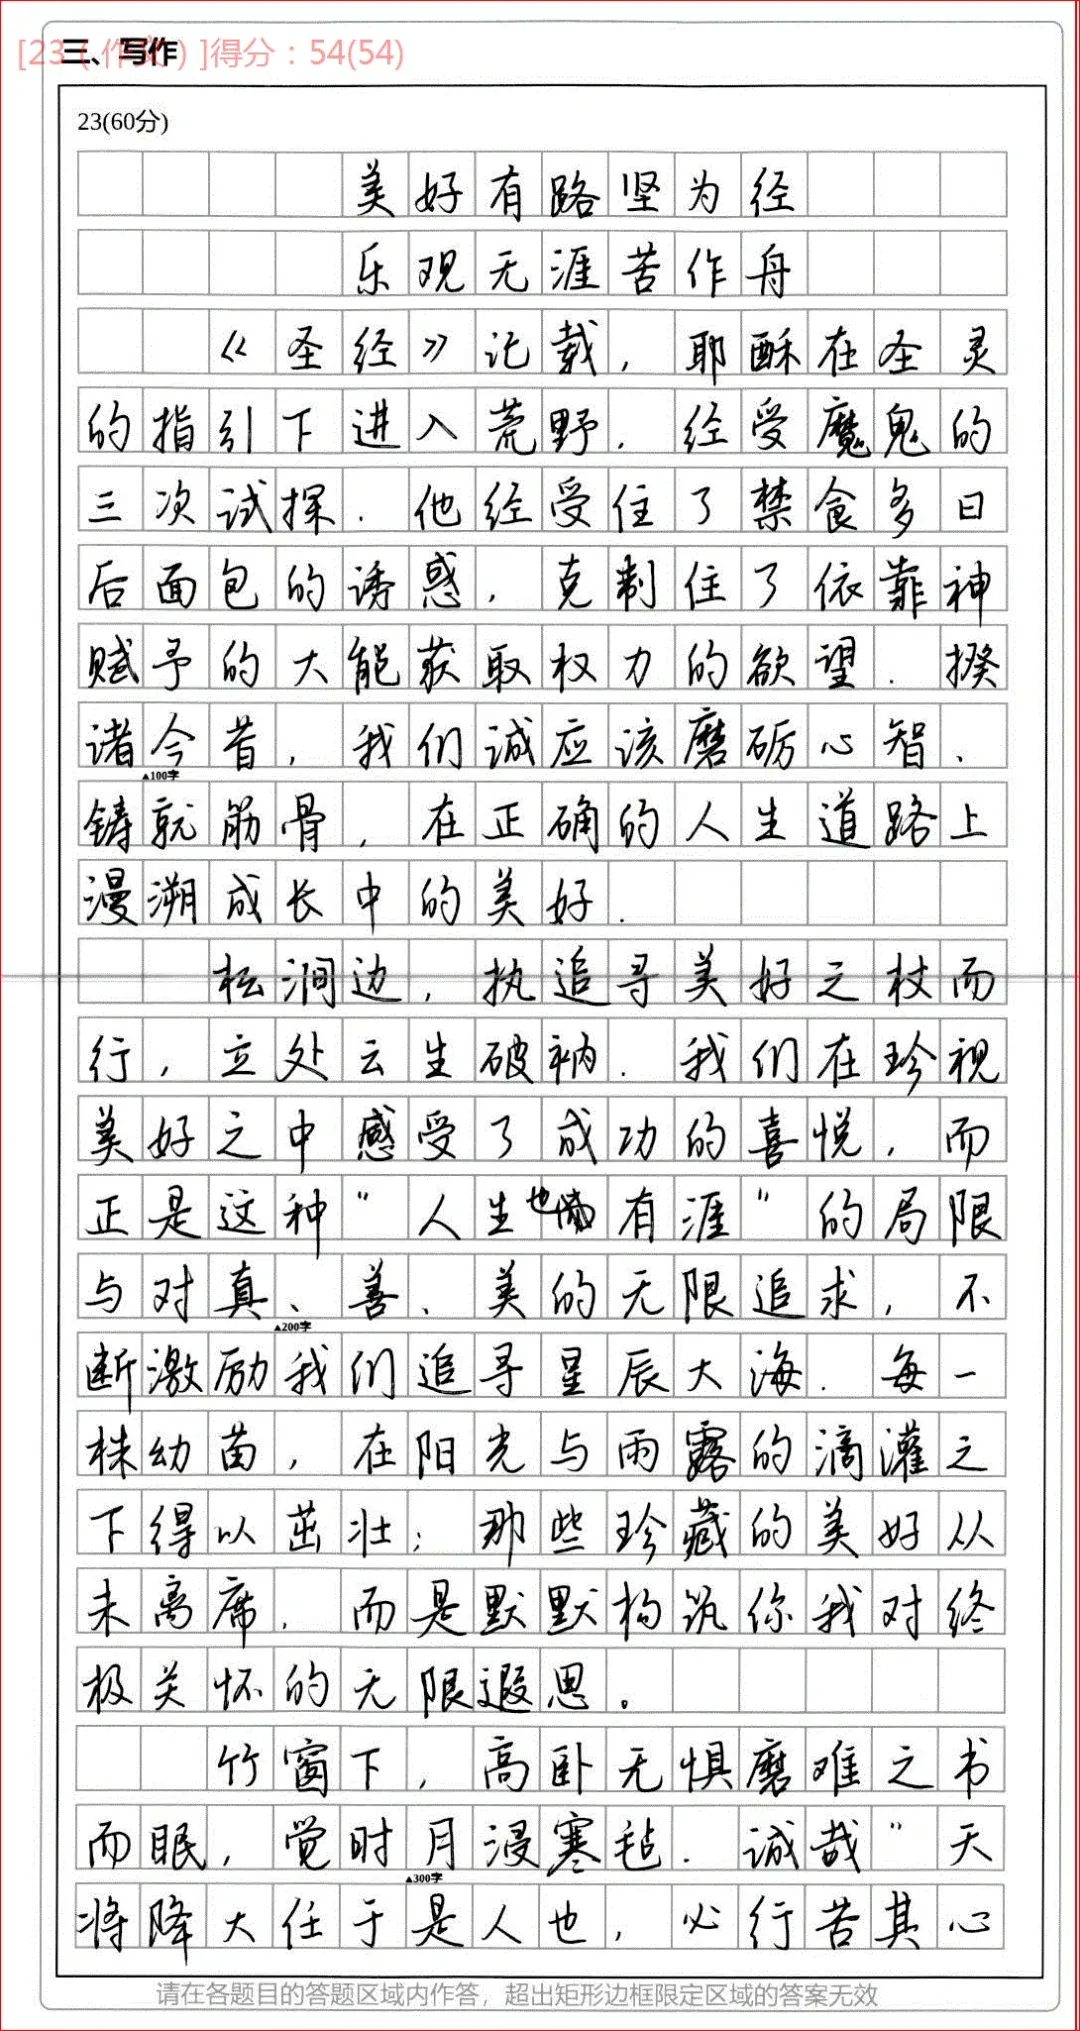 [23（作文）]得分：54(54)
三、写作
23(60分)
美好有路坚为经
乐观无涯苦作舟
《圣经》记载，耶酥在圣灵
的指引下进入荒野．经受魔鬼的
三次试探．他经受住了禁食多日
后面包的诱惑，克制住了依靠神
赋予的大能获取权力的欲望．揆
诸今昔，我们诚应该磨砺心智、
▲100字
铸就筋骨，在正确的人生道路上
漫溯成长中的美好．
松涧边，执追寻美好之杖而
行，立处云生破衲．我们在珍视
美好之中感受了成功的喜悦，而
正是这种"人生也有涯"的局限
与对真、善、美的无限追求，不
▲200字
断激励我们追寻星辰大海．每一
株幼苗，在阳光与雨露的滴灌之
下得以茁壮；那些珍藏的美好从
未离席．而是默默构筑你我对终
极关怀的无限遐思。
竹窗下，高卧无惧磨难之书
而眠，觉时月浸寒毡．诚哉"天
▲300字
将降大任于是人也，必行苦其心
请在各题目的答题区域内作答，超出矩形边框限定区域的答案无效